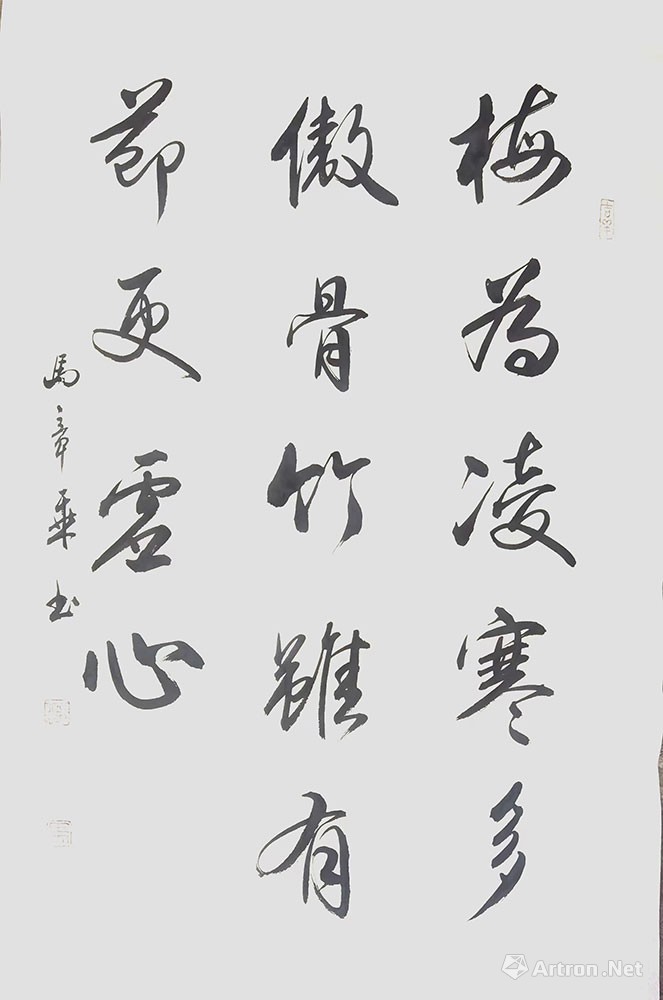 梅為凌寒多
傲骨竹雖有
節更虛心
馬章乘書
Artron.Net